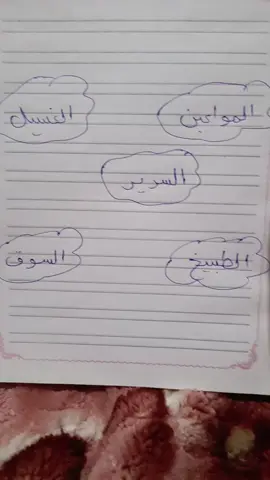 المواعين
الغسيل
السرير
الطبيخ
السوق